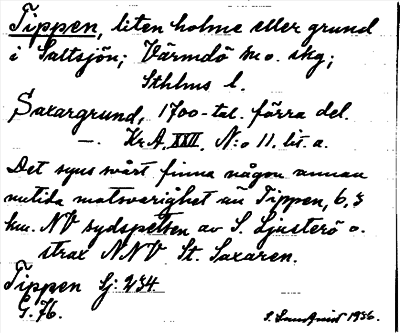 Tippen, liten holme eller grund
i Saltsjön; Värmdö m. o. skg;
Sthlms l.
Saxargrund, 1700-tal. förra del.
—. Kr A. XXII. N:o 11. lit. a.
Det syns svårt finna någon annan
nutida motsvarighet än Tippen, 6,3
km. NV sydspetsen av S. Ljusterö o.
strax NNV St. Saxaren.
Tippen Sj: 234.
G. 76.
S. 1936.